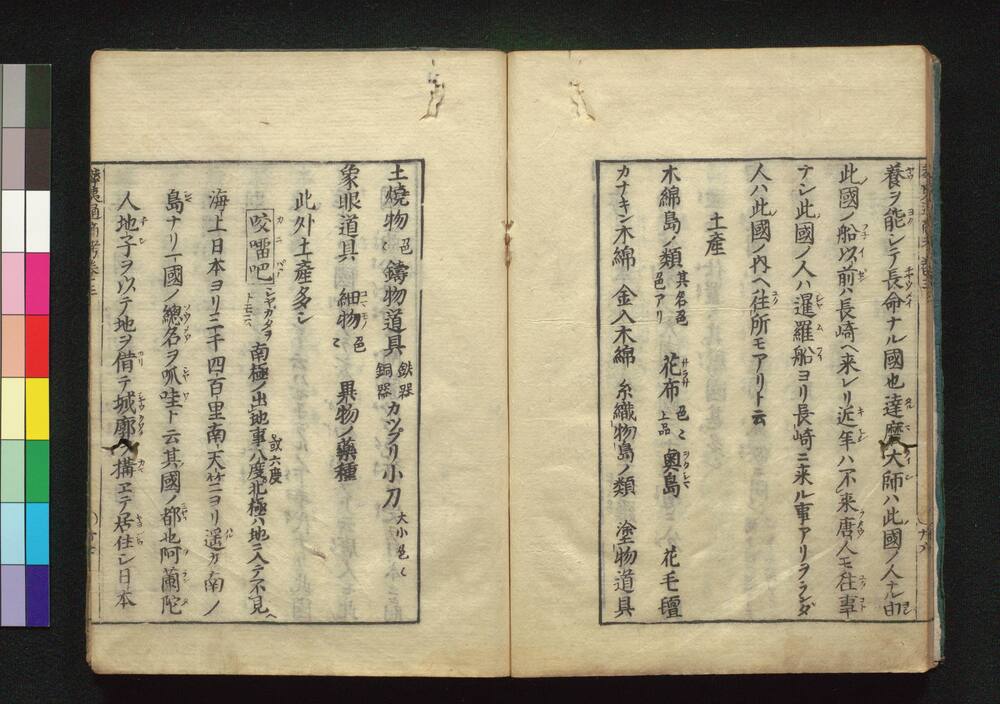 養ヲ能シテ長命ナル國也達磨大師ハ此國ノ人ナル由
此國ノ船以前ハ長崎ヘ来レリ近年ハ不来唐人モ往事
ナシ此國ノ人ハ暹羅船ヨリ長崎ニ来ル事アリヲランダ
人ハ此國ノ内ヘ住所モアリト云
土産
木綿島ノ類 其名色色アリ 花布 色々上品 奥島 花毛氊
カナキン木綿 金入木綿 糸織物島ノ類 塗物道具
土燒物 色々 鑄物道具 鉄器銅器 カツプリ小刀 大小色々
象眼道具 細物 色々 果物ノ藥種
此外土産多シ
咬𠺕吧 シヤガタラトモニ 南極ノ出地事八度或六度北極ハ地ニ入テ不見
海上日本ヨリ三千四百里南天竺ヨリ遥カ南ノ
島ナリ一國ノ總名ヲ爪哇ト云其國ノ都也阿蘭陀
人地子ヲ以テ地ヲ借テ城廓ヲ構ヱテ居住シ日本